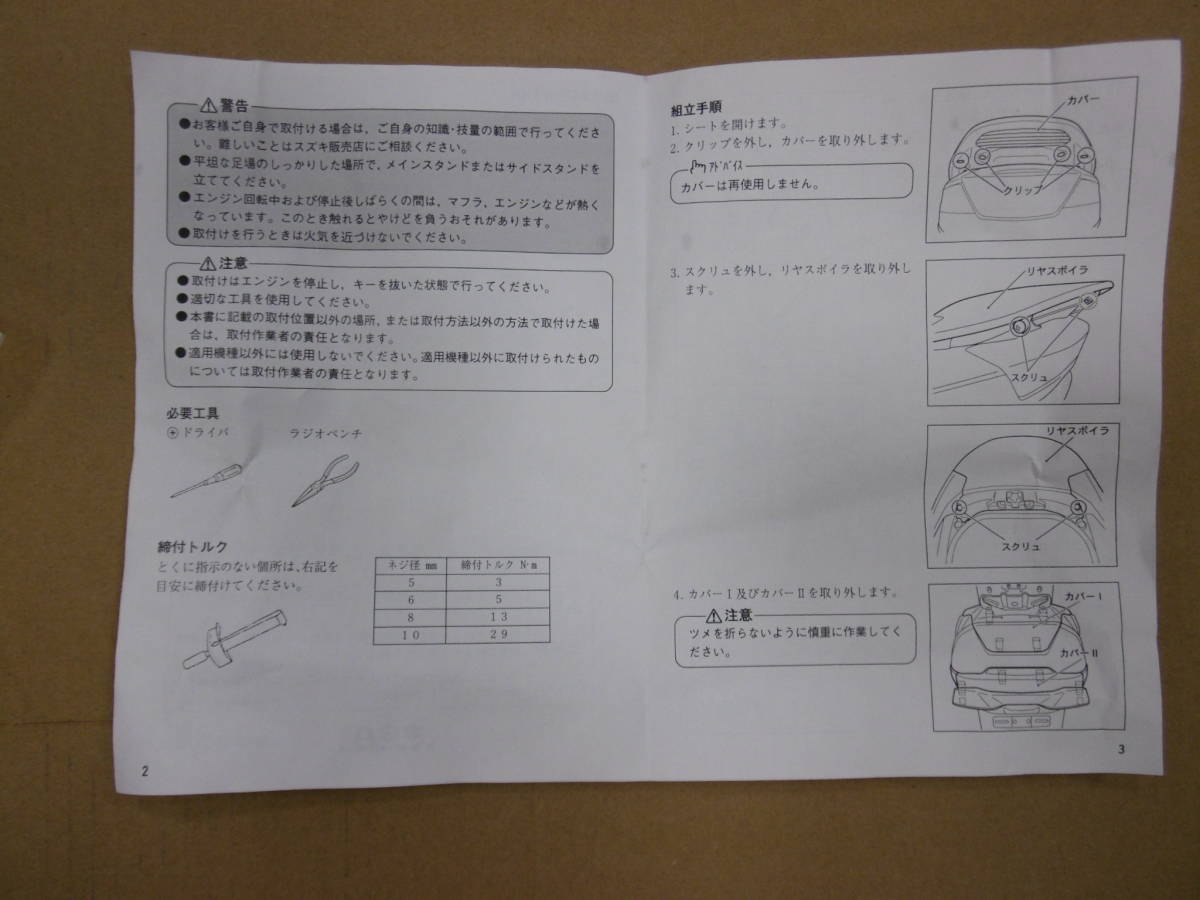 ⚠警告
●お客様ご自身で取付ける場合は，ご自身の知識・技量の範囲で行ってくださ
い。難しいことはスズキ販売店にご相談ください。
●平坦な足場のしっかりした場所で，メインスタンドまたはサイドスタンドを
立ててください。
●エンジン回転中および停止後しばらくの間は，マフラ，エンジンなどが熱く
なっています。このとき触れるとやけどを負うおそれがあります。
●取付けを行うときは火気を近づけないでください。
⚠注意
●取付けはエンジンを停止し，キーを抜いた状態で行ってください。
●適切な工具を使用してください。
●本書に記載の取付位置以外の場所，または取付方法以外の方法で取付けた場
合は，取付作業者の責任となります。
●適用機種以外には使用しないでください。適用機種以外に取付けられたもの
については取付作業者の責任となります。
必要工具
⊕ドライバ
ラジオペンチ
締付トルク
とくに指示のない個所は，右記を
目安に締付けてください。
ネジ径 mm 締付トルク N･m
5 3
6 5
8 13
10 29
2
組立手順
1. シートを開けます。
2. クリップを外し，カバーを取り外します。
ｱﾄﾞﾊﾞｲｽ
カバーは再使用しません。
カバー
クリップ
3. スクリュを外し，リヤスポイラを取り外し
ます。
リヤスポイラ
スクリュ
リヤスポイラ
スクリュ
4. カバーⅠ及びカバーⅡを取り外します。
⚠注意
ツメを折らないように慎重に作業してく
ださい。
カバーⅠ
カバーⅡ
3